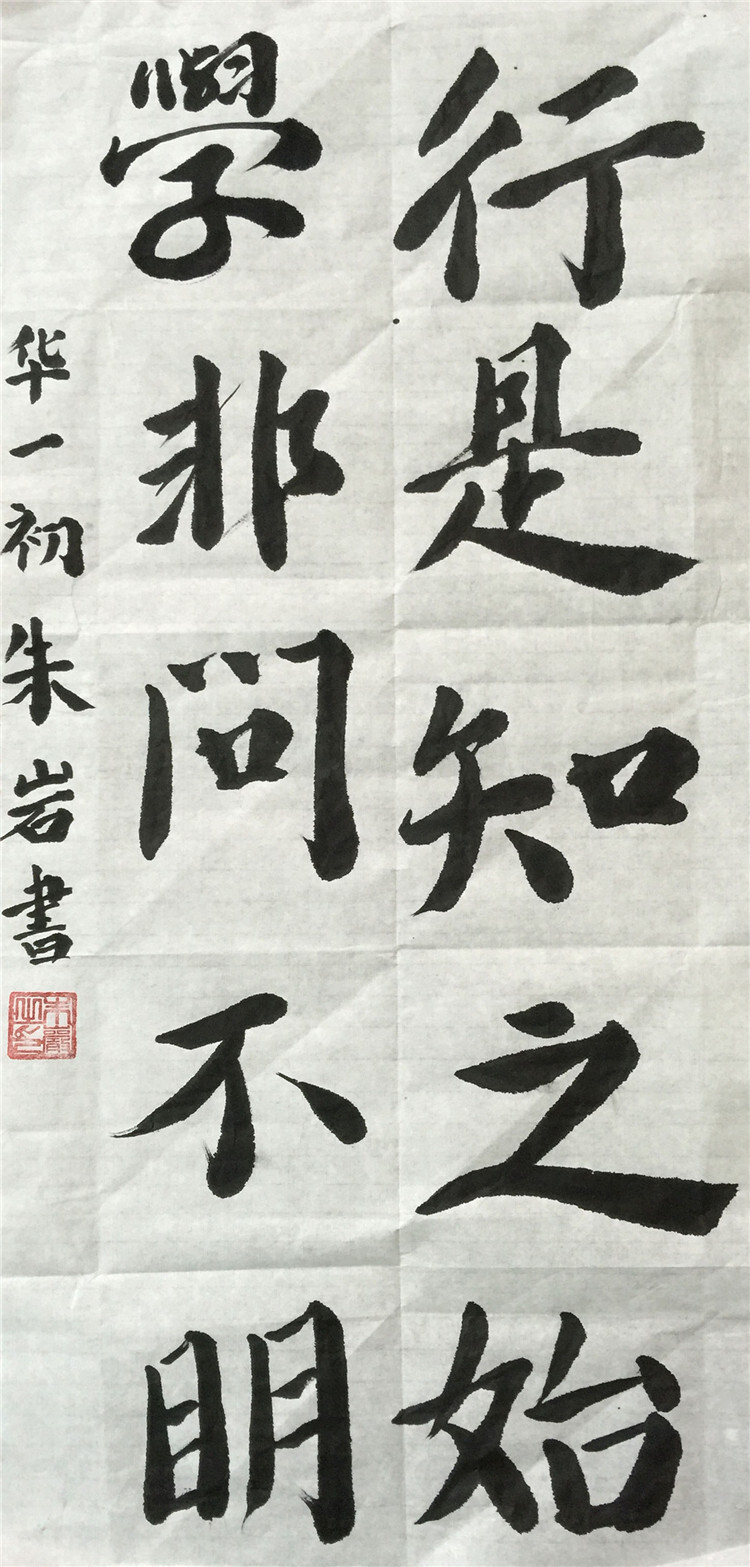 行是知之始
學非問不明
华一初朱岩書
朱巖之印